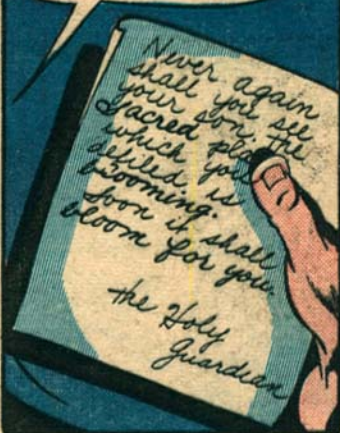 Never again
shall you see
your son, the
sacred
which you
defiled, is
blooming.
Soon it shall
bloom for you.
the Holy
Guardian